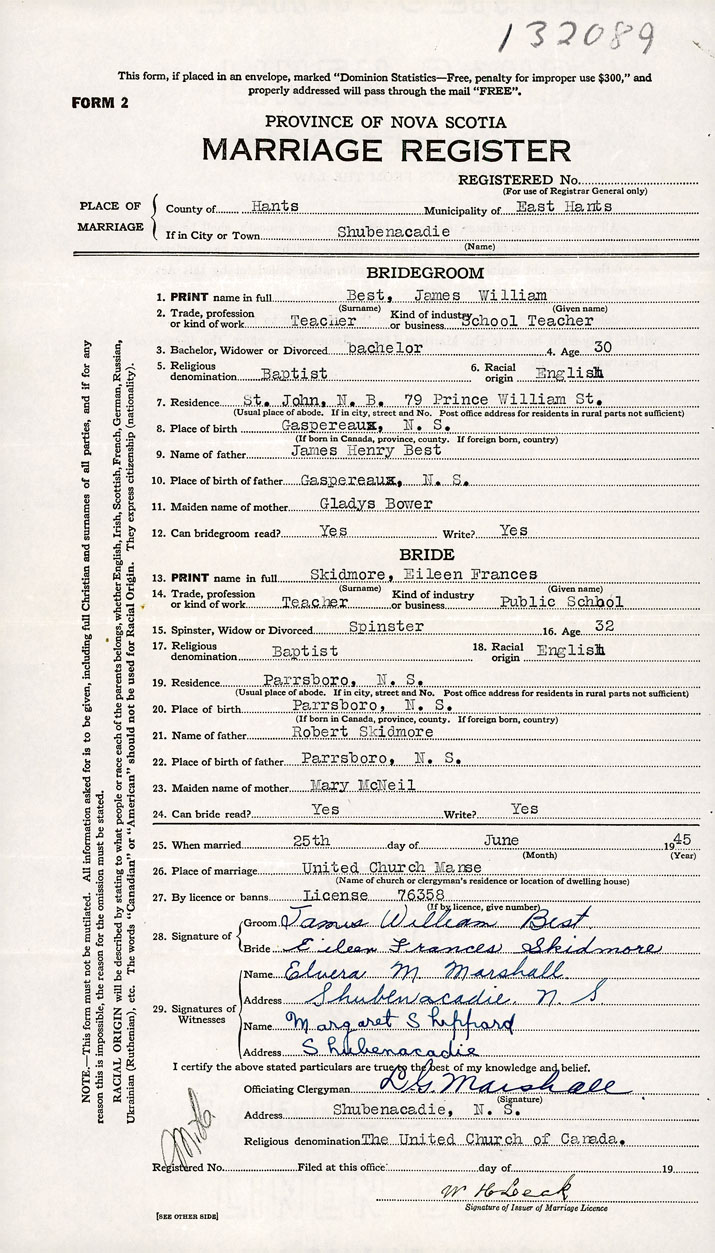 132089
This form, if placed in an envelope, marked “Dominion Statistics—Free, penalty for improper use $300,” and
properly addressed will pass through the mail “FREE”.
FORM 2
PROVINCE OF NOVA SCOTIA
MARRIAGE REGISTER
REGISTERED No.
(For use of Registrar General only)
PLACE OF MARRIAGE
County of Hants Municipality of East Hants
If in City or Town Shubenacadie
(Name)
BRIDEGROOM
1. PRINT name in full Best, James William
(Surname) (Given name)
2. Trade, profession or kind of work Teacher Kind of industry or business School Teacher
3. Bachelor, Widower or Divorced bachelor 4. Age 30
5. Religious denomination Baptist 6. Racial origin English
7. Residence St. John, N. B. 79 Prince William St.
(Usual place of abode. If in city, street and No. Post office address for residents in rural parts not sufficient)
8. Place of birth Gaspereaux, N. S.
(If born in Canada, province, county. If foreign born, country)
9. Name of father James Henry Best
10. Place of birth of father Gaspereaux, N. S.
11. Maiden name of mother Gladys Bower
12. Can bridegroom read? Yes Write? Yes
BRIDE
13. PRINT name in full Skidmore, Eileen Frances
(Surname) (Given name)
14. Trade, profession or kind of work Teacher Kind of industry or business Public School
15. Spinster, Widow or Divorced Spinster 16. Age 32
17. Religious denomination Baptist 18. Racial origin English
19. Residence Parrsboro, N. S.
(Usual place of abode. If in city, street and No. Post office address for residents in rural parts not sufficient)
20. Place of birth Parrsboro, N. S.
(If born in Canada, province, county. If foreign born, country)
21. Name of father Robert Skidmore
22. Place of birth of father Parrsboro, N. S.
23. Maiden name of mother Mary McNeil
24. Can bride read? Yes Write? Yes
25. When married 25th day of June 1945
(Month) (Year)
26. Place of marriage United Church Manse
(Name of church or clergyman's residence or location of dwelling house)
27. By licence or banns License 76358
(If by licence, give number)
28. Signature of
Groom James William Best
Bride Eileen Frances Skidmore
29. Signatures of Witnesses
Name Elvera M. Marshall
Address Shubenacadie. N S
Name Margaret Sheppard
Address Shubenacadie
I certify the above stated particulars are true to the best of my knowledge and belief.
Officiating Clergyman L G. Marshall
(Signature)
Address Shubenacadie, N. S.
Religious denomination The United Church of Canada.
Registered No. Filed at this office day of 19
W H Leck
Signature of Issuer of Marriage Licence
[SEE OTHER SIDE]
NOTE.—This form must not be mutilated. All information asked for is to be given, including full Christian and surnames of all parties, and if for any
reason this is impossible, the reason for the omission must be stated.
RACIAL ORIGIN will be described by stating to what people or race each of the parents belongs, whether English, Irish, Scottish, French, German, Russian,
Ukrainian (Ruthenian), etc. The words “Canadian” or “American” should not be used for Racial Origin. They express citizenship (nationality).